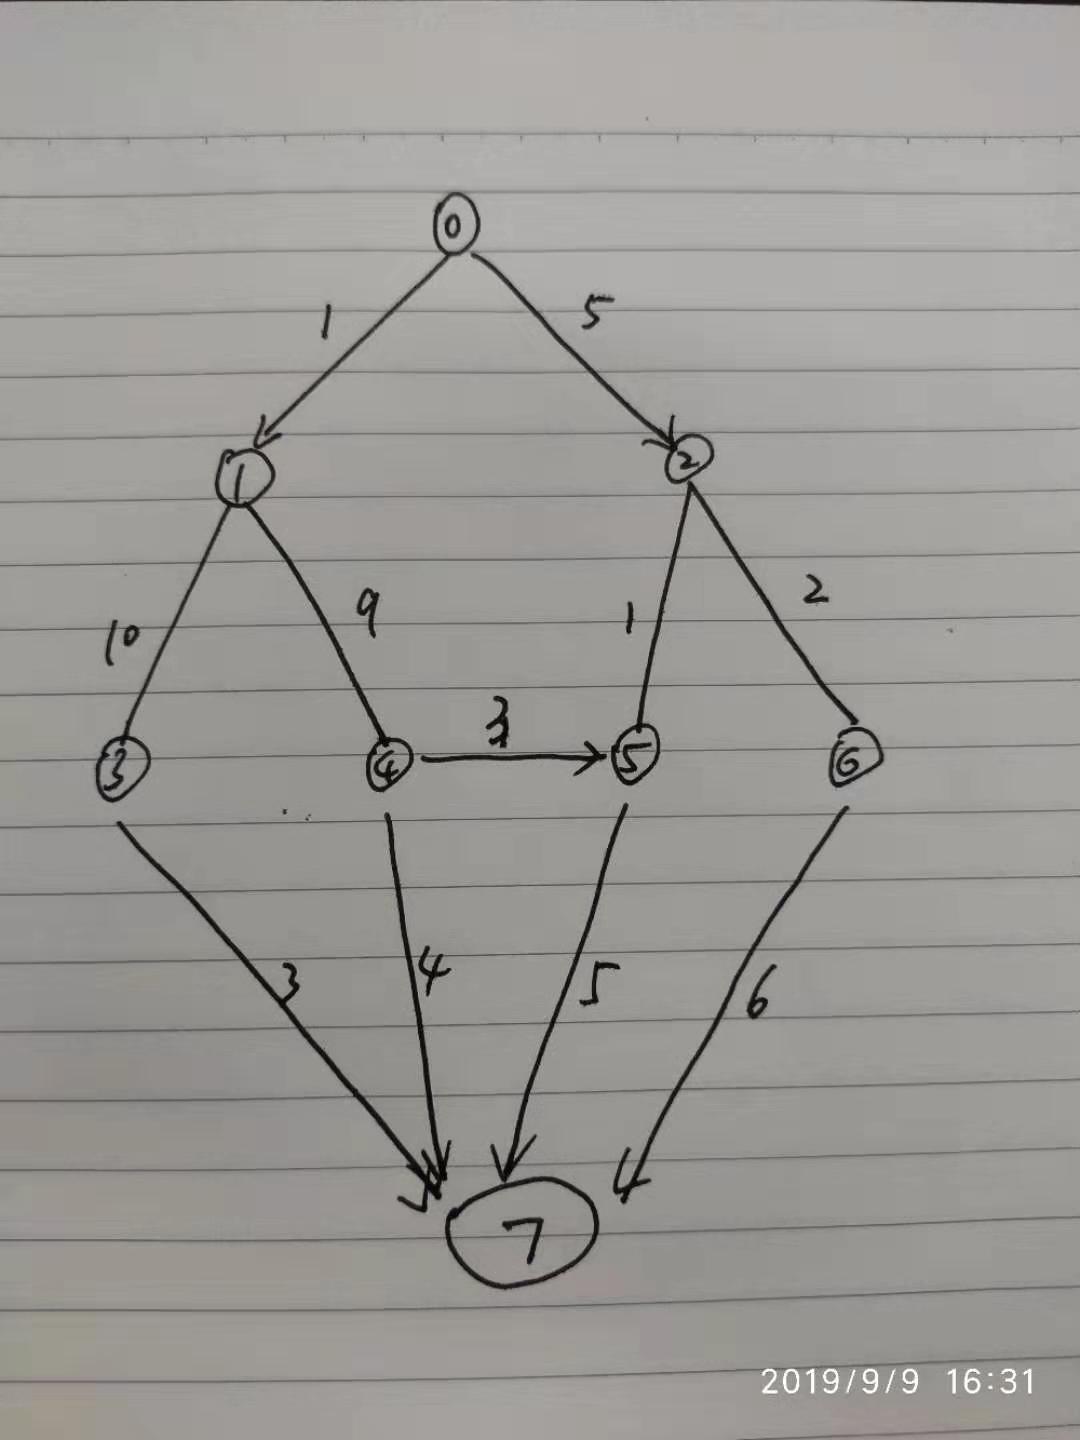 0
1 5
1 2
10 9 1 2
3
3 4 5 6
3 4 5 6
7
2019/9/9 16:31